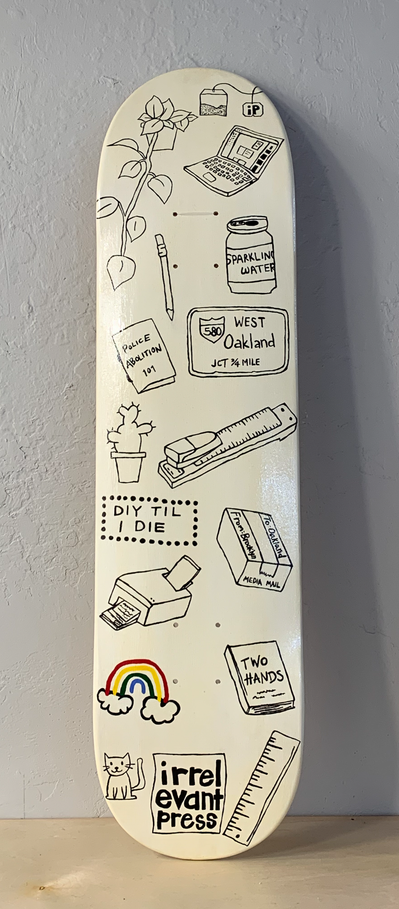 iP
SPARKLING
WATER
580
WEST
Oakland
JCT ¾ MILE
POLICE
ABOLITION
101
DIY TIL
I DIE
From Brooklyn
To Oakland
MEDIA MAIL
TWO
HANDS
irrel
evant
press